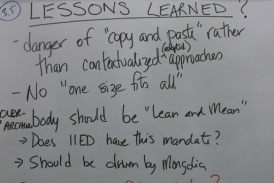 3.5 LESSONS LEARNED?
- danger of "copy and paste" rather
than contextualized (adapted) approaches
- No "one size fits all"
OVER-ARCHING body should be "Lean and Mean"
→ Does IIED have this mandate?
→ Should be driven by Mongolia